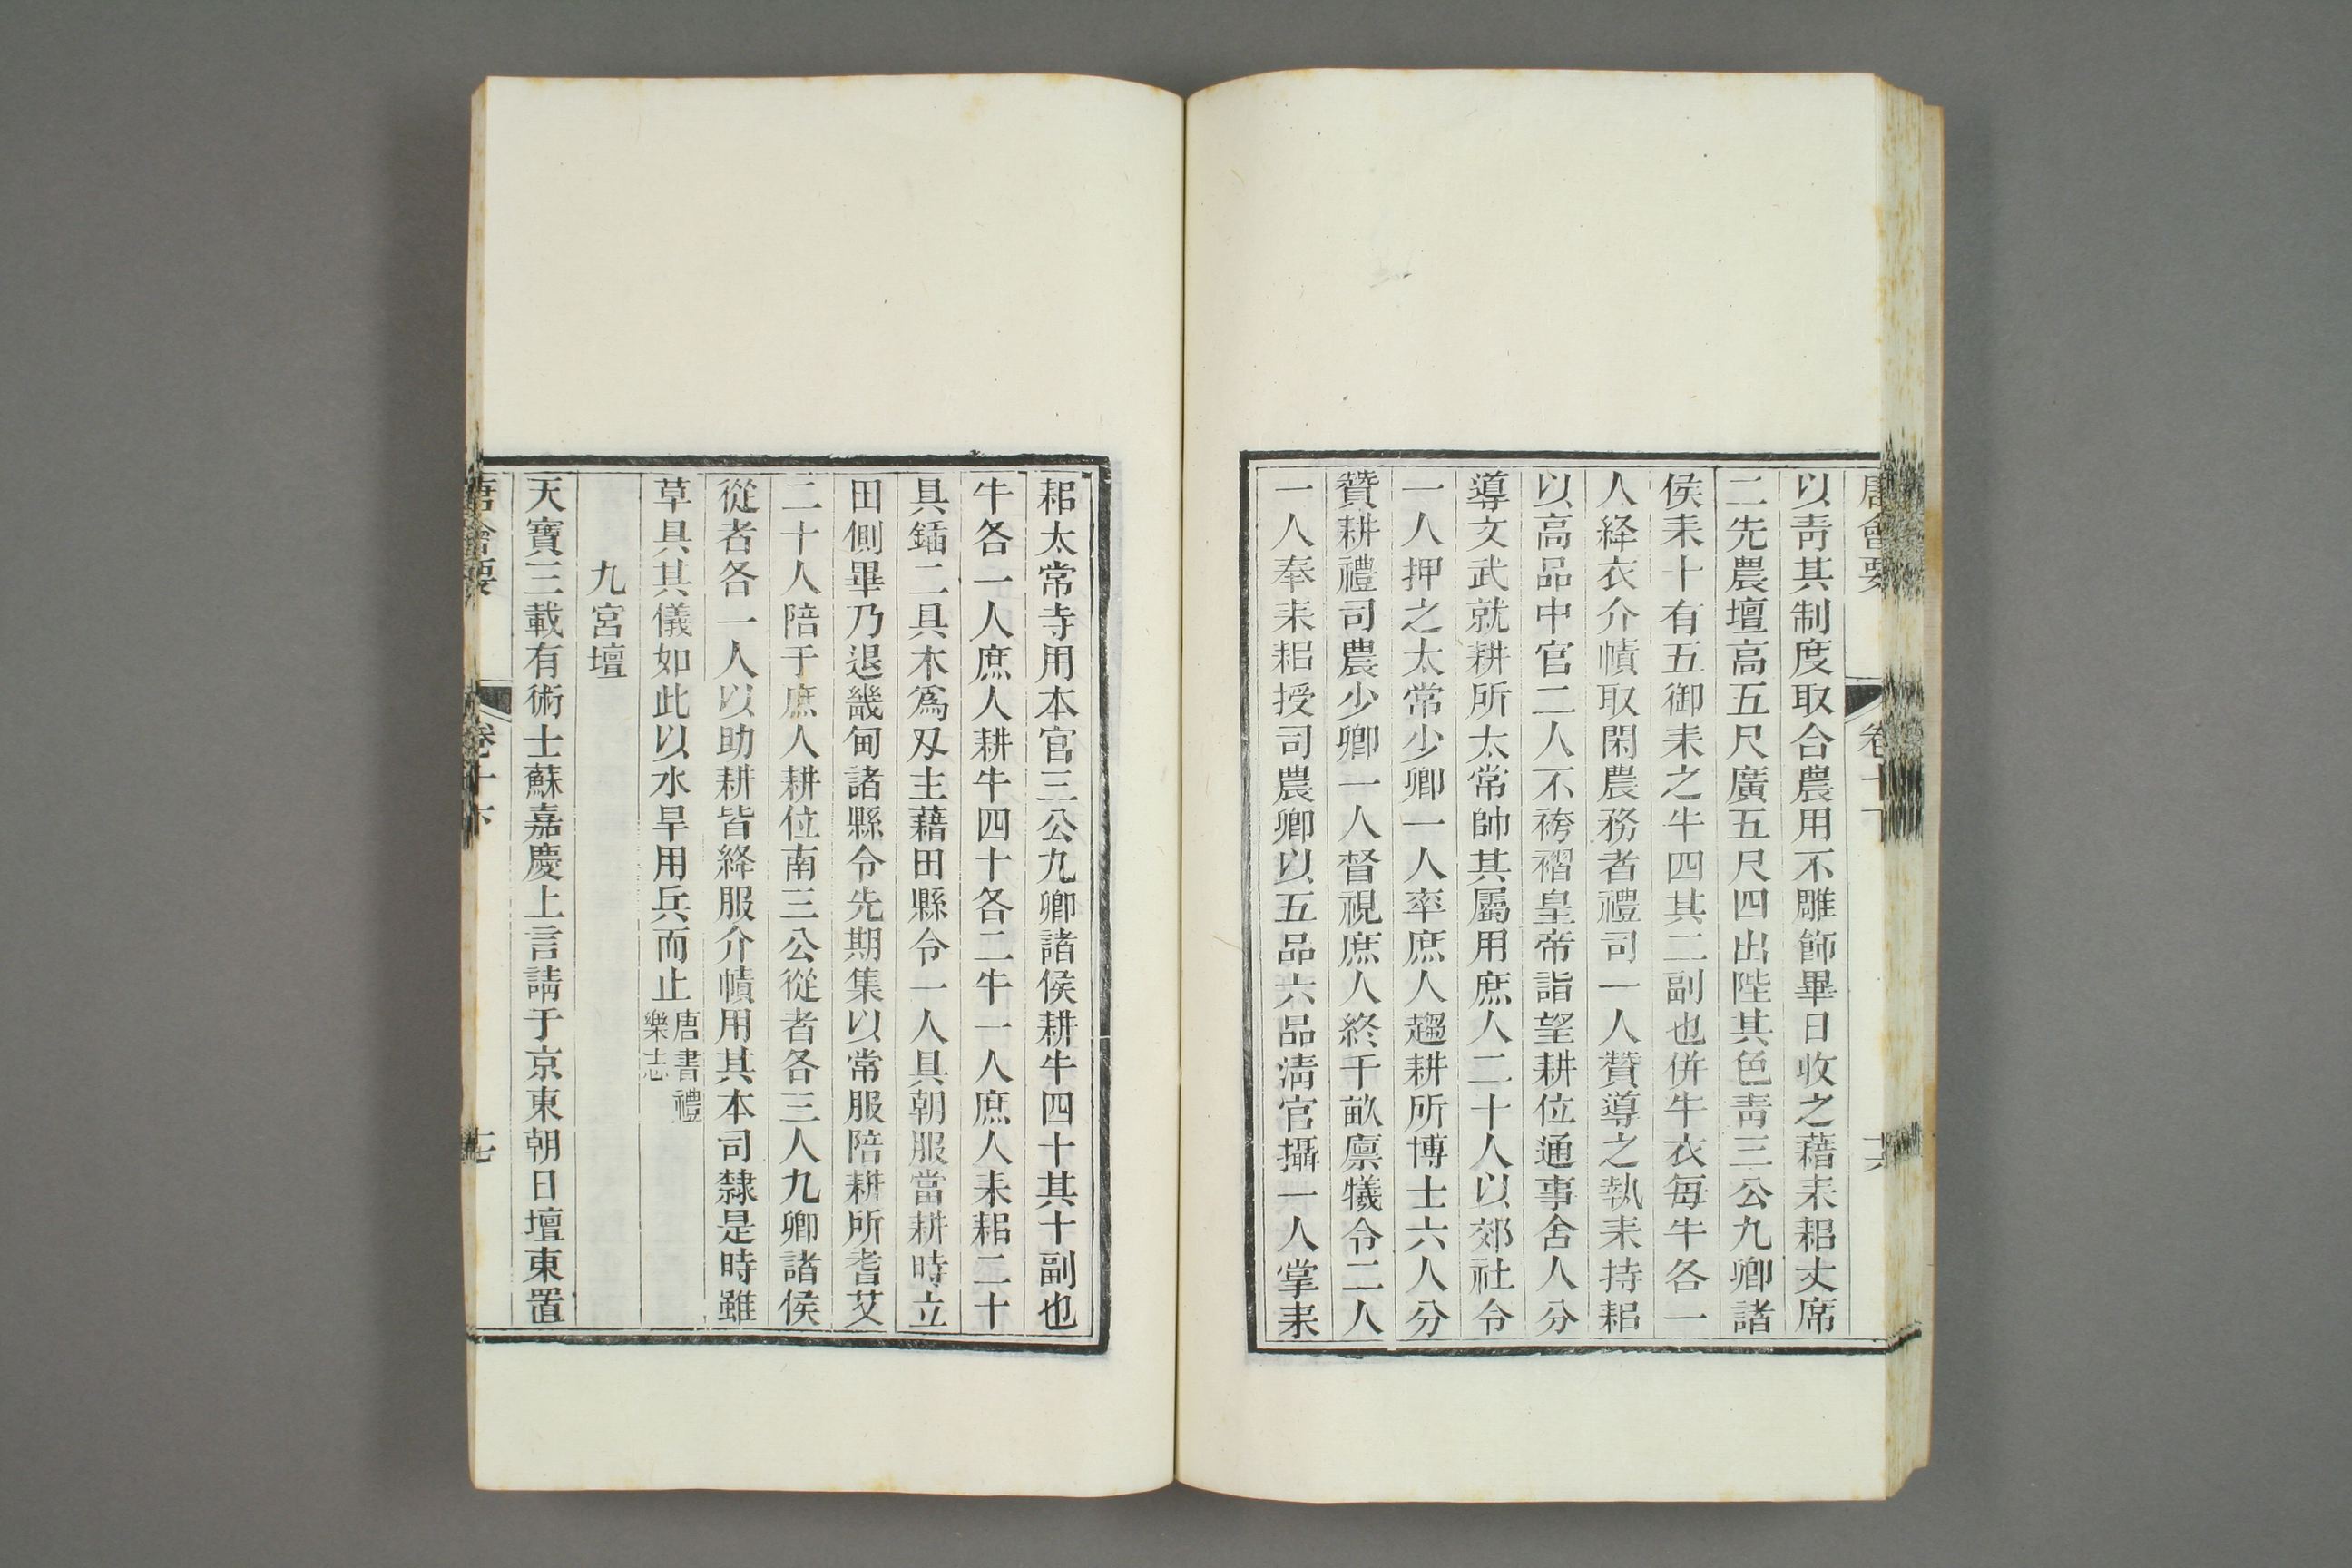 以靑其制度取合農用不雕飾畢日收之藉耒耜丈席
二先農壇高五尺廣五尺四出陛其色靑三公九卿諸
侯耒十有五御耒之牛四其二副也併牛衣每牛各一
人絳衣介幘取閑農務者禮司一人贊導之執耒持耜
以高品中官二人不袴褶皇帝詣望耕位通事舍人分
導文武就耕所太常帥其屬用庶人二十人以郊社令
一人押之太常少卿一人率庶人趨耕所博士六人分
贊耕禮司農少卿一人督視庶人終千畝廪犧令二人
一人奉耒耜授司農卿以五品六品淸官攝一人掌耒
耜太常寺用本官三公九卿諸侯耕牛四十其十副也
牛各一人庶人耕牛四十各二牛一人庶人耒耜二十
具鍤二具木爲刄主藉田縣令一人具朝服當耕時立
田側畢乃退畿甸諸縣令先期集以常服陪耕所耆艾
二十人陪于庶人耕位南三公從者各三人九卿諸侯
從者各一人以助耕皆絳服介幘用其本司隸是時雖
草具其儀如此以水旱用兵而止唐書禮樂志
九宮壇
天寶三載有術士蘇嘉慶上言請于京東朝日壇東置
唐會要